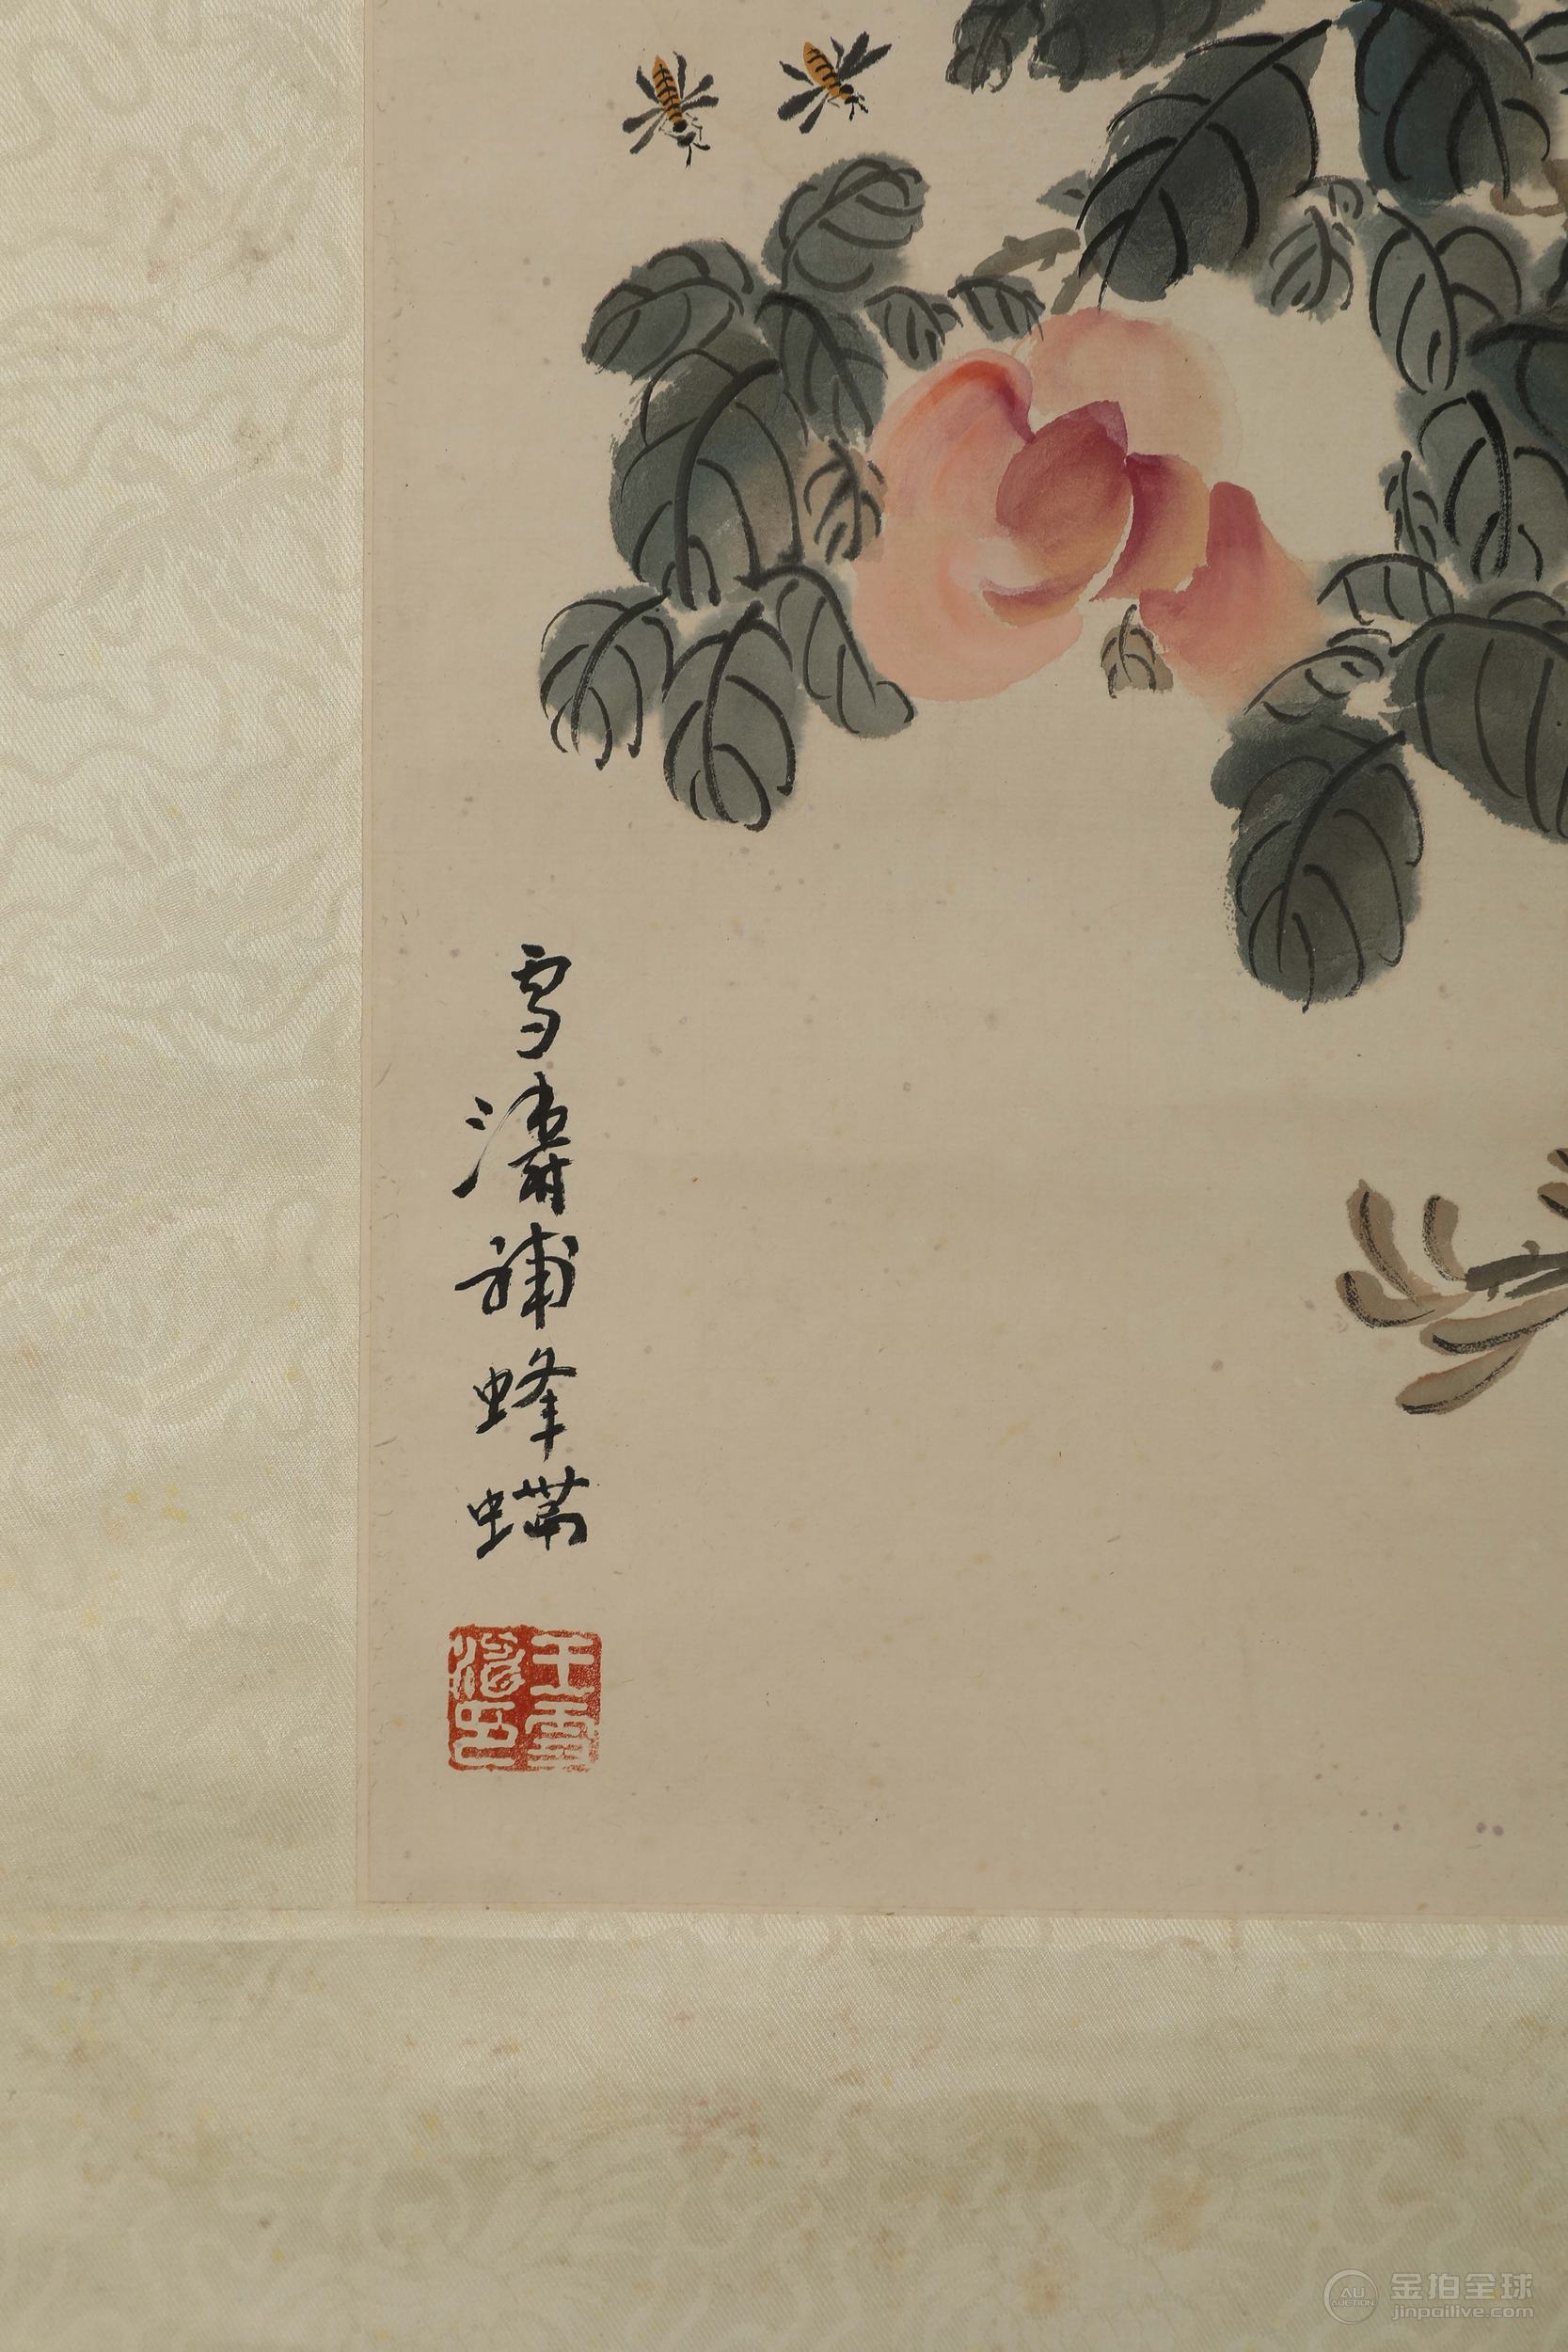 雪濤補蜂蝶
王雪
濤印
AU
AUCTION
金拍全球
jinpailive.com